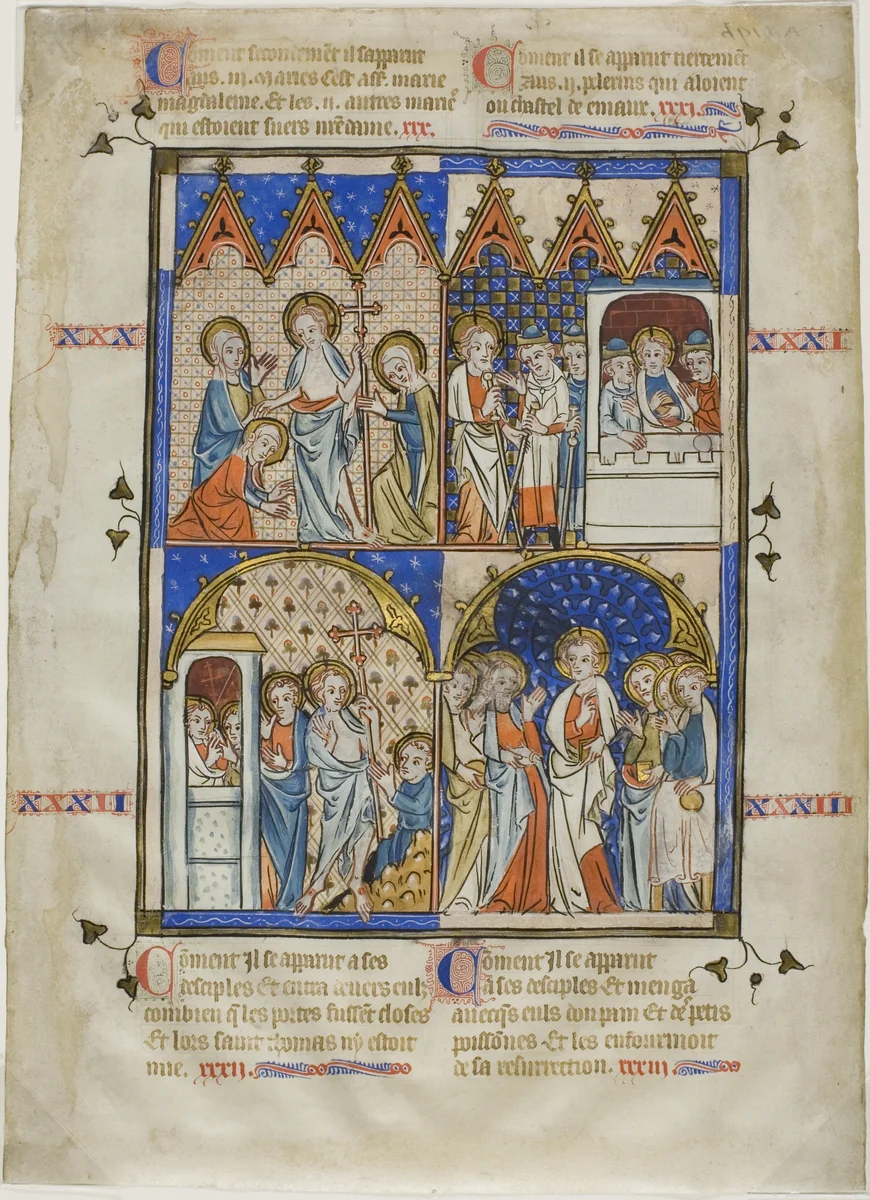 Coment secondemēt il sapparut
aus .iii. Maries Cest ass. marie
magdaleine. Et les .ii. autres marieˢ
qui estoient suers nrēdame. xxx.
Coment il se apparut tiercemēt
aus .ii. pelerins qui aloient
ou chastel de emaux. xxxi.
XXX
XXXI
XXXII
XXXIII
Cōment Jl se apparut a ses
desciples Et entra deuers eulx
combien q̄ les portes fussēt closes
Et lors saint thomas ny estoit
mie. xxxii.
Cōment Jl se apparut
a ses desciples Et menga
auecq̄s euls don pain Et de petis
poissōnes Et les enfourmoit
de sa resurrection. xxxiii